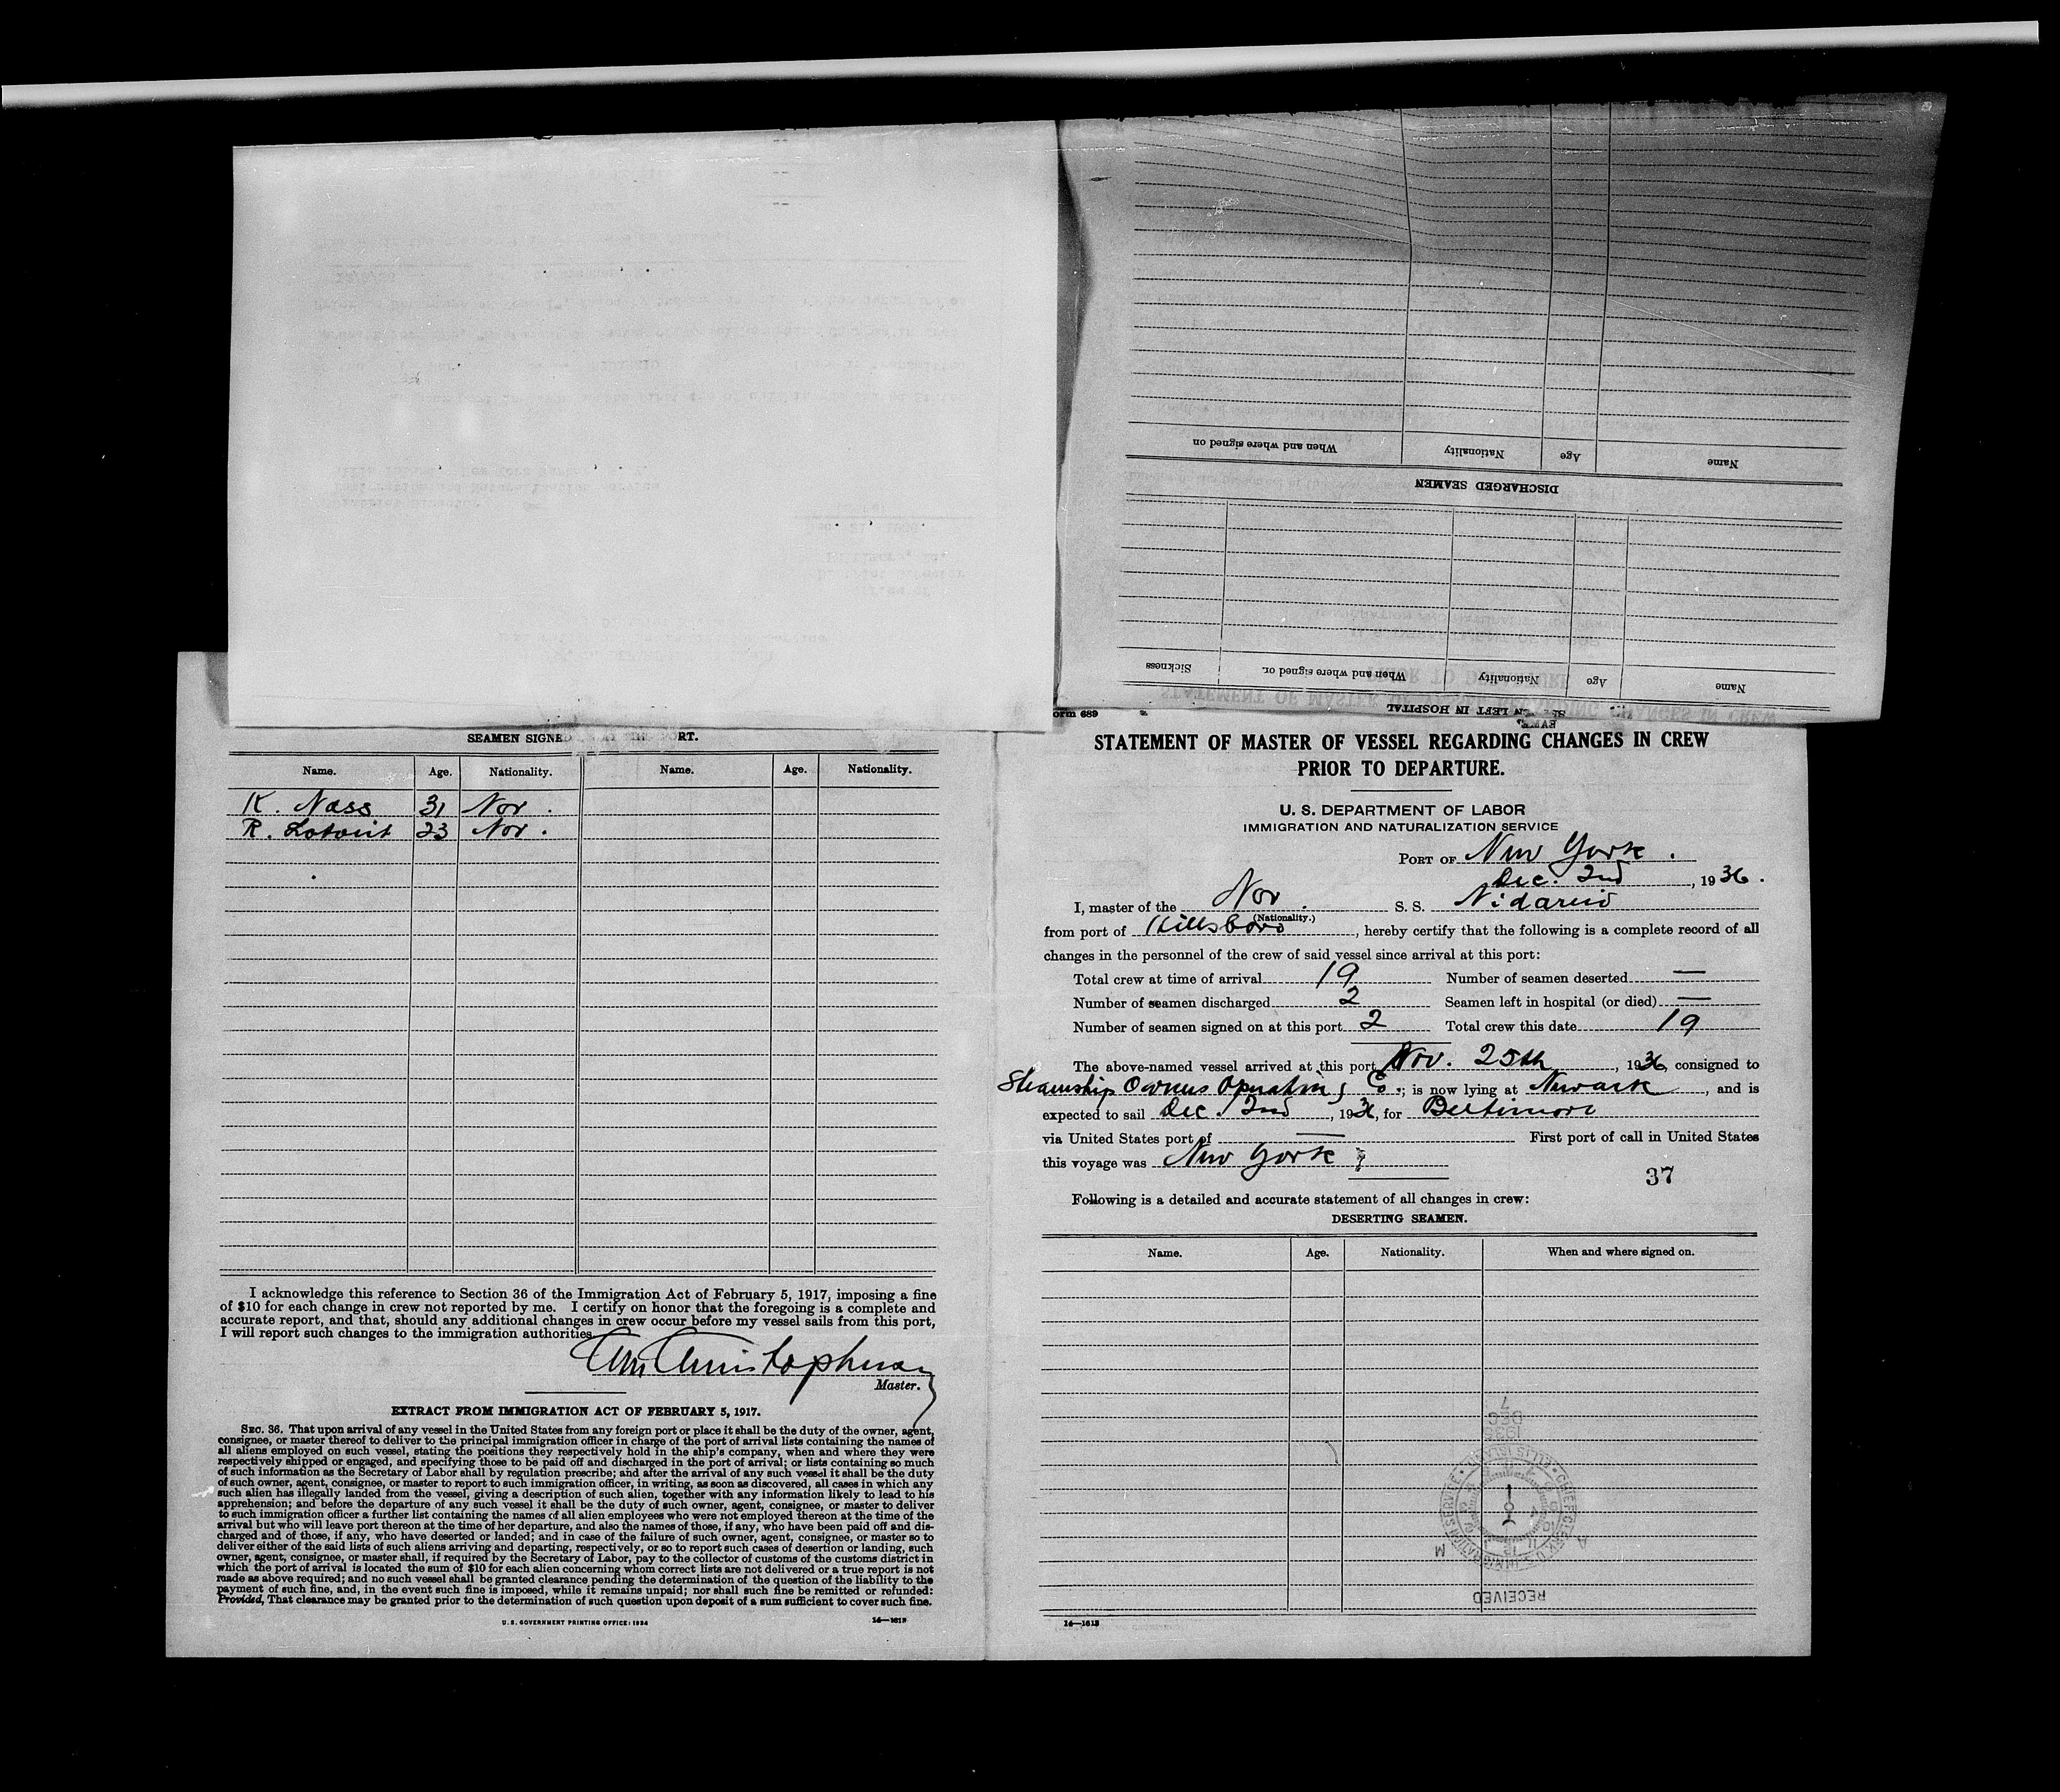 When and where signed on
Nationality
Age
Name
DISCHARGED SEAMEN
Sickness
When and where signed or.
Nationality
Age
Name
LEFT IN HOSPITAL
orm 689
SEAMEN SIGNED RT.
Name. Age. Nationality. Name. Age. Nationality.
K. Nass 31 Nor.
R. 23 Nor.
I acknowledge this reference to Section 36 of the Immigration Act of February 5, 1917, imposing a fine
of $10 for each change in crew not reported by me. I certify on honor that the foregoing is a complete and
accurate report, and that, should any additional changes in crew occur before my vessel sails from this port,
I will report such changes to the immigration authorities.
Master.
EXTRACT FROM IMMIGRATION ACT OF FEBRUARY 5, 1917.
SEC. 36. That upon arrival of any vessel in the United States from any foreign port or place it shall be the duty of the owner, agent,
consignee, or master thereof to deliver to the principal immigration officer in charge of the port of arrival lists containing the names of
all aliens employed on such vessel, stating the positions they respectively hold in the ship's company, when and where they were
respectively shipped or engaged, and specifying those to be paid off and discharged in the port of arrival; or lists containing so much
of such information as the Secretary of Labor shall by regulation prescribe; and after the arrival of any such vessel it shall be the duty
of such owner, agent, consignee, or master to report to such immigration officer, in writing, as soon as discovered, all cases in which any
such alien has illegally landed from the vessel, giving a description of such alien, together with any information likely to lead to his
apprehension; and before the departure of any such vessel it shall be the duty of such owner, agent, consignee, or master to deliver
to such immigration officer a further list containing the names of all alien employees who were not employed thereon at the time of the
arrival but who will leave port thereon at the time of her departure, and also the names of those, if any, who have been paid off and dis-
charged and of those, if any, who have deserted or landed; and in case of the failure of such owner, agent, consignee, or master so to
deliver either of the said lists of such aliens arriving and departing, respectively, or so to report such cases of desertion or landing, such
owner, agent, consignee, or master shall, if required by the Secretary of Labor, pay to the collector of customs of the customs district in
which the port of arrival is located the sum of $10 for each alien concerning whom correct lists are not delivered or a true report is not
made as above required; and no such vessel shall be granted clearance pending the determination of the question of the liability to the
payment of such fine, and, in the event such fine is imposed, while it remains unpaid; nor shall such fine be remitted or refunded:
Provided, That clearance may be granted prior to the determination of such question upon deposit of a sum sufficient to cover such fine.
U. S. GOVERNMENT PRINTING OFFICE: 1934 14—1613
STATEMENT OF MASTER OF VESSEL REGARDING CHANGES IN CREW
PRIOR TO DEPARTURE.
U. S. DEPARTMENT OF LABOR
IMMIGRATION AND NATURALIZATION SERVICE
PORT OF New York.
Dec. 2nd, 1936.
I, master of the Nor. S. S. Nidareid
(Nationality.)
from port of Hillsboro, hereby certify that the following is a complete record of all
changes in the personnel of the crew of said vessel since arrival at this port:
Total crew at time of arrival 19 Number of seamen deserted —
Number of seamen discharged 2 Seamen left in hospital (or died) —
Number of seamen signed on at this port 2 Total crew this date 19
The above-named vessel arrived at this port Nov. 25th, 1936, consigned to
Steamship Owners Operating Co.; is now lying at Newark, and is
expected to sail Dec. 2nd, 1936, for Baltimore
via United States port of — First port of call in United States
this voyage was New York
37
Following is a detailed and accurate statement of all changes in crew:
DESERTING SEAMEN.
Name. Age. Nationality. When and where signed on.
7
DEC
1936
RECEIVED
14—1613